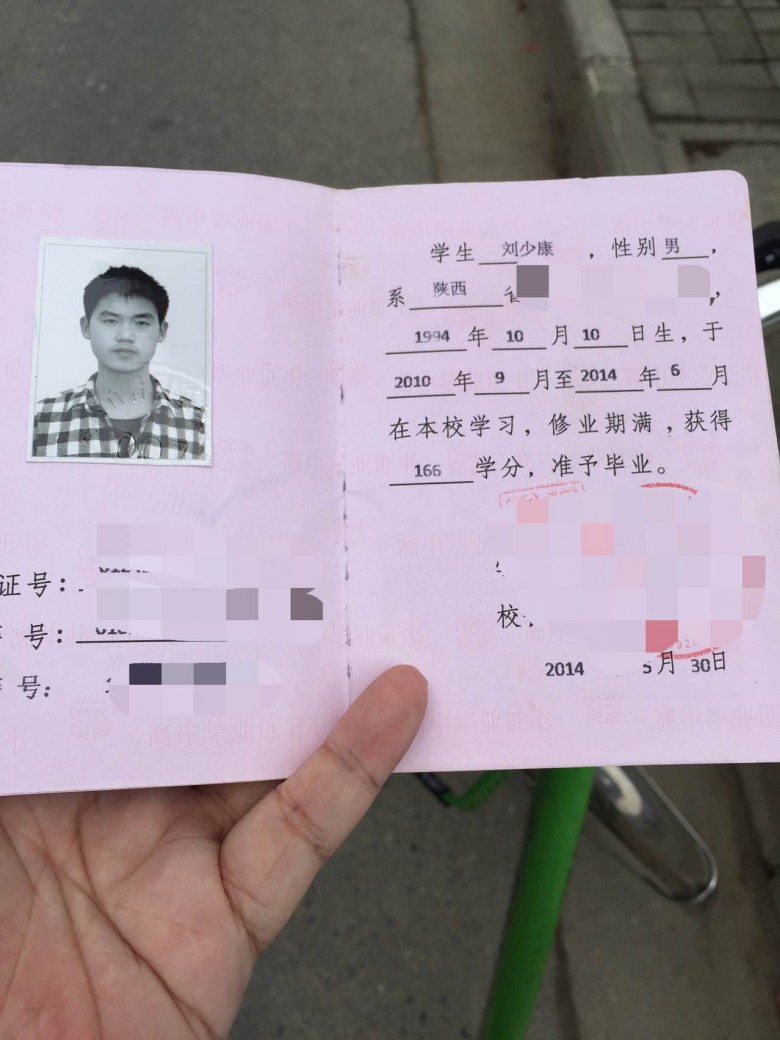 学生 刘少康 ，性别 男 ，
系 陕西 省
1994 年 10 月 10 日生，于
2010 年 9 月至 2014 年 6 月
在本校学习，修业期满，获得
166 学分，准予毕业。
证号：
号：
号：
校
2014 5月 30日